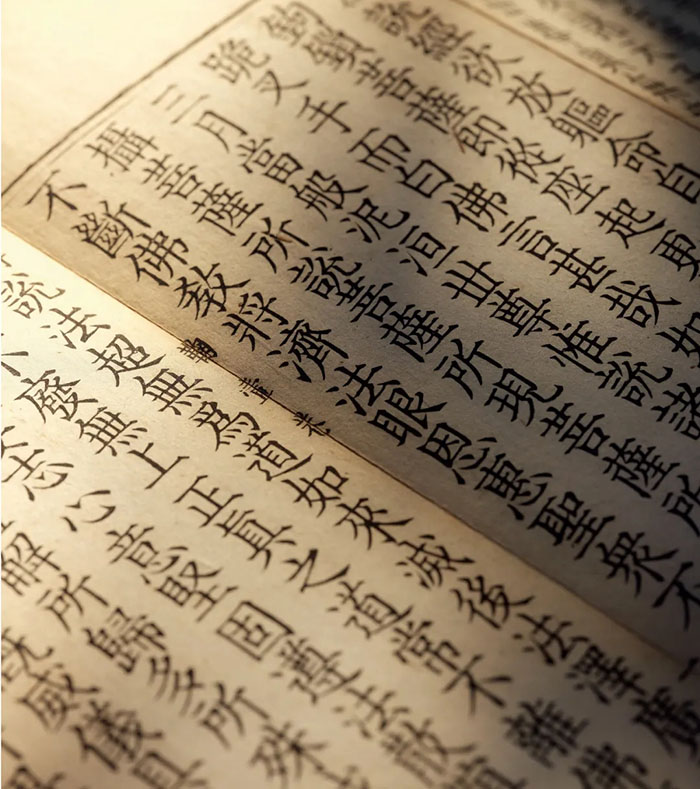 說經欲放軀命自
鉤鎖菩薩即從座起更
跪叉手而白佛言甚哉如
三月當般泥洹世尊惟說諸
攝菩薩所說菩薩所現菩薩所
不斷佛教將濟法眼恩惠聖眾不
說法超無為道如來滅後法澤廣
不廢無上正真之道常不離佛
志心意堅固遵法
解所歸多所殊
威儀